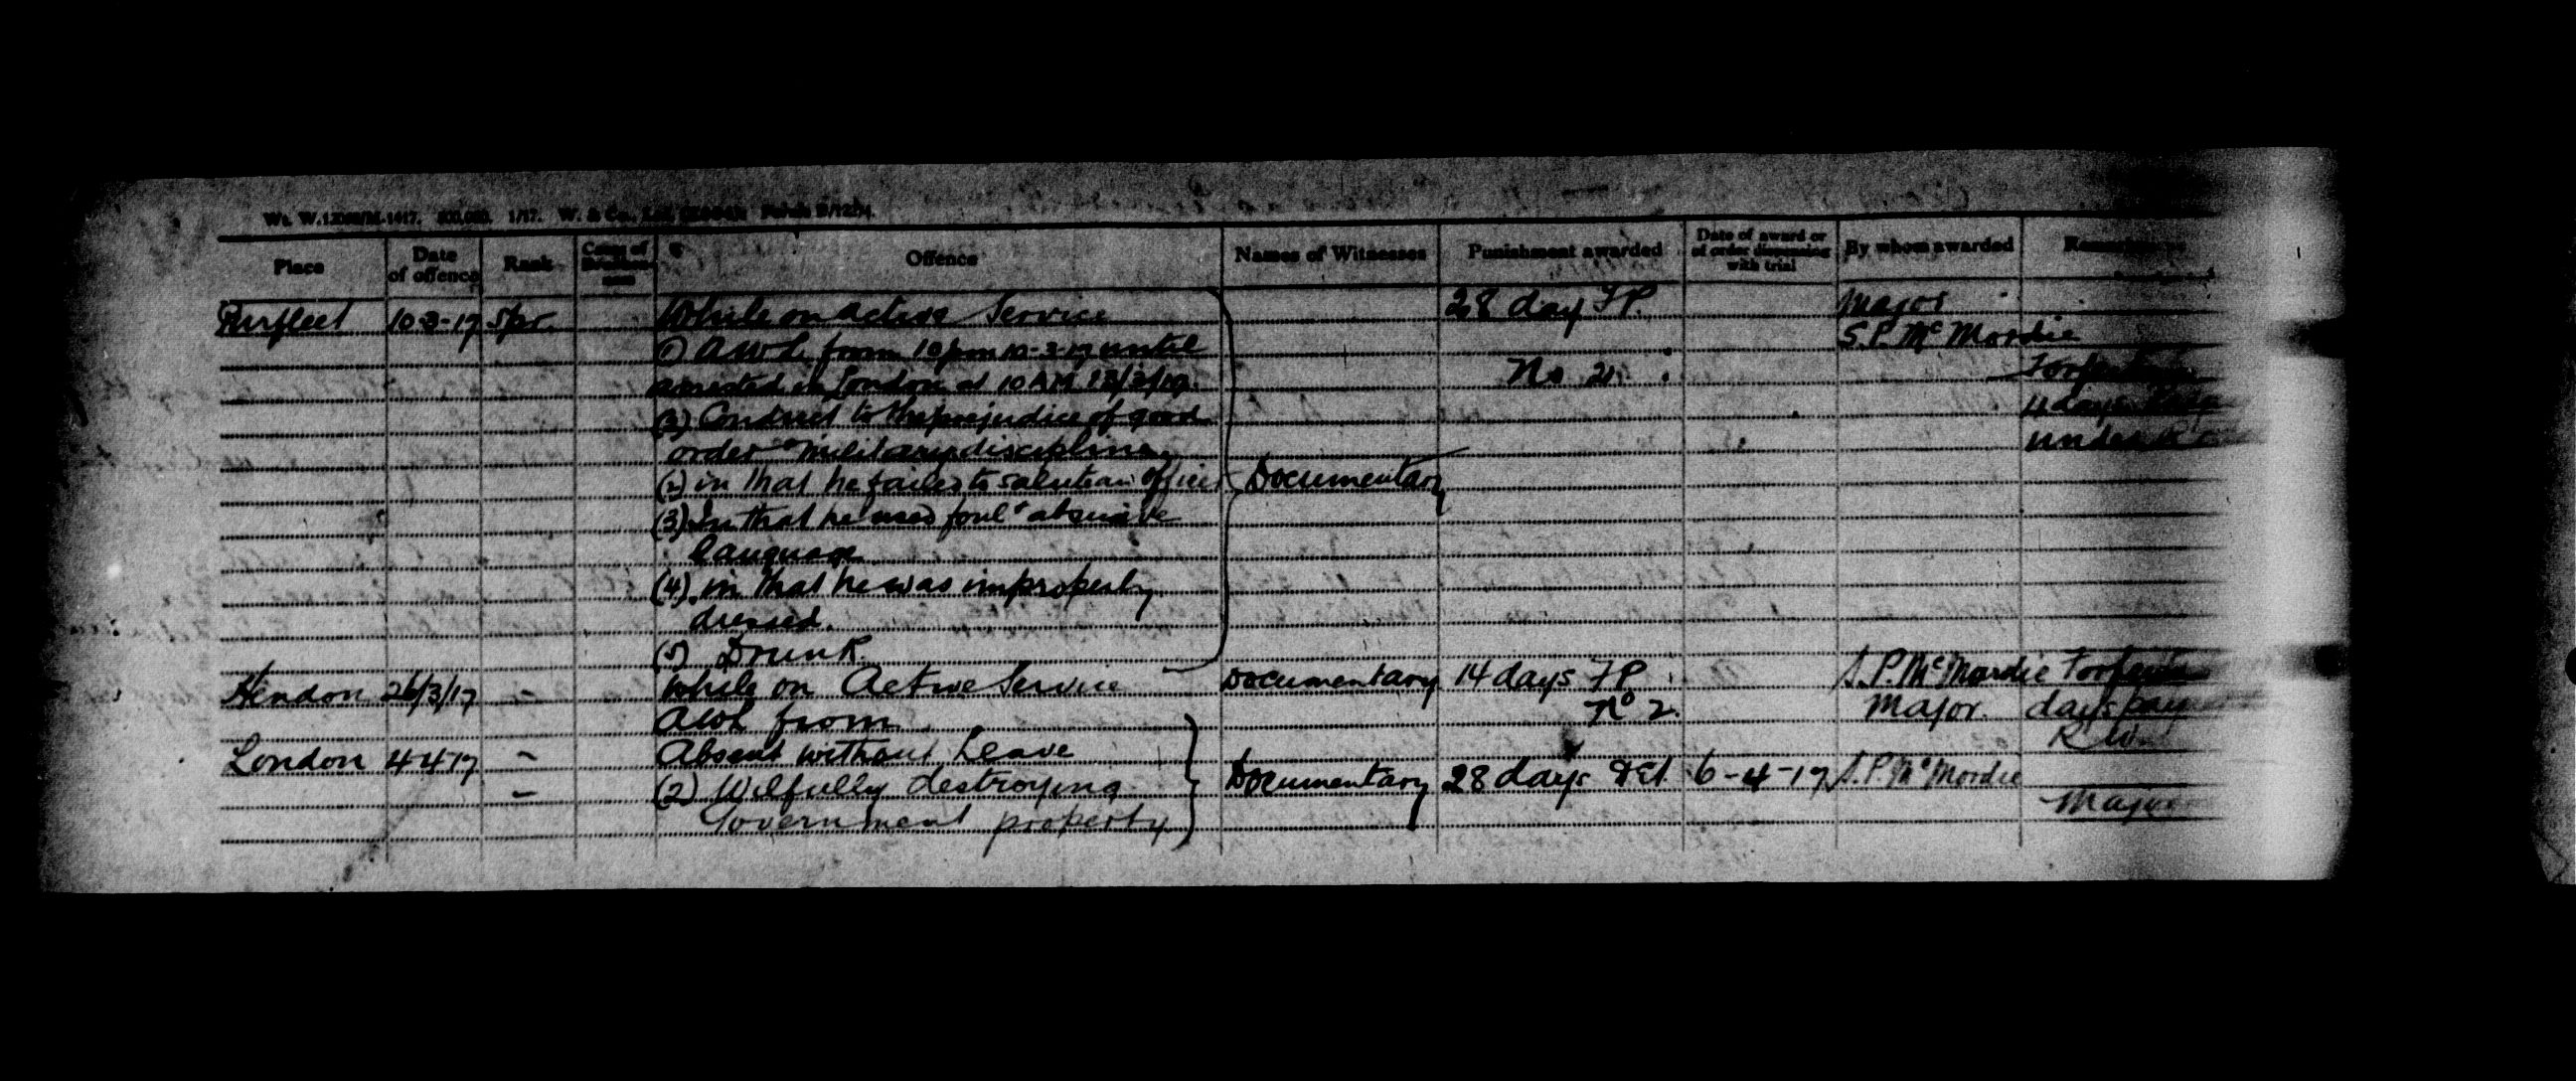 Place Date of offence Rank Offence Names of Witnesses Punishment awarded Date of award or of order dispensing with trial By whom awarded
Purfleet 10-3-17 Spr. While on active Service 28 day F.P. Major
S.P. McMordie
① AWL from 10pm 10-3-17 until
arrested in London at 10 AM No 2.
Conduct to the prejudice of good 4 days
order military discipline under
(2) in that he failed to salute an officer Documentary
(3) In that he used foul + abusive
language
(4) in that he was improperly
dressed.
(5) Drunk.
Hendon 26/3/17 - While on Active Service Documentary 14 days F P S.P. McMordie
AWL from No 2. Major. days pay
R W.
London 4 4 17 - Absent without Leave
- (2) Wilfully destroying Documentary 28 days Det. 6-4-17 S.P. McMordie
Government property Major